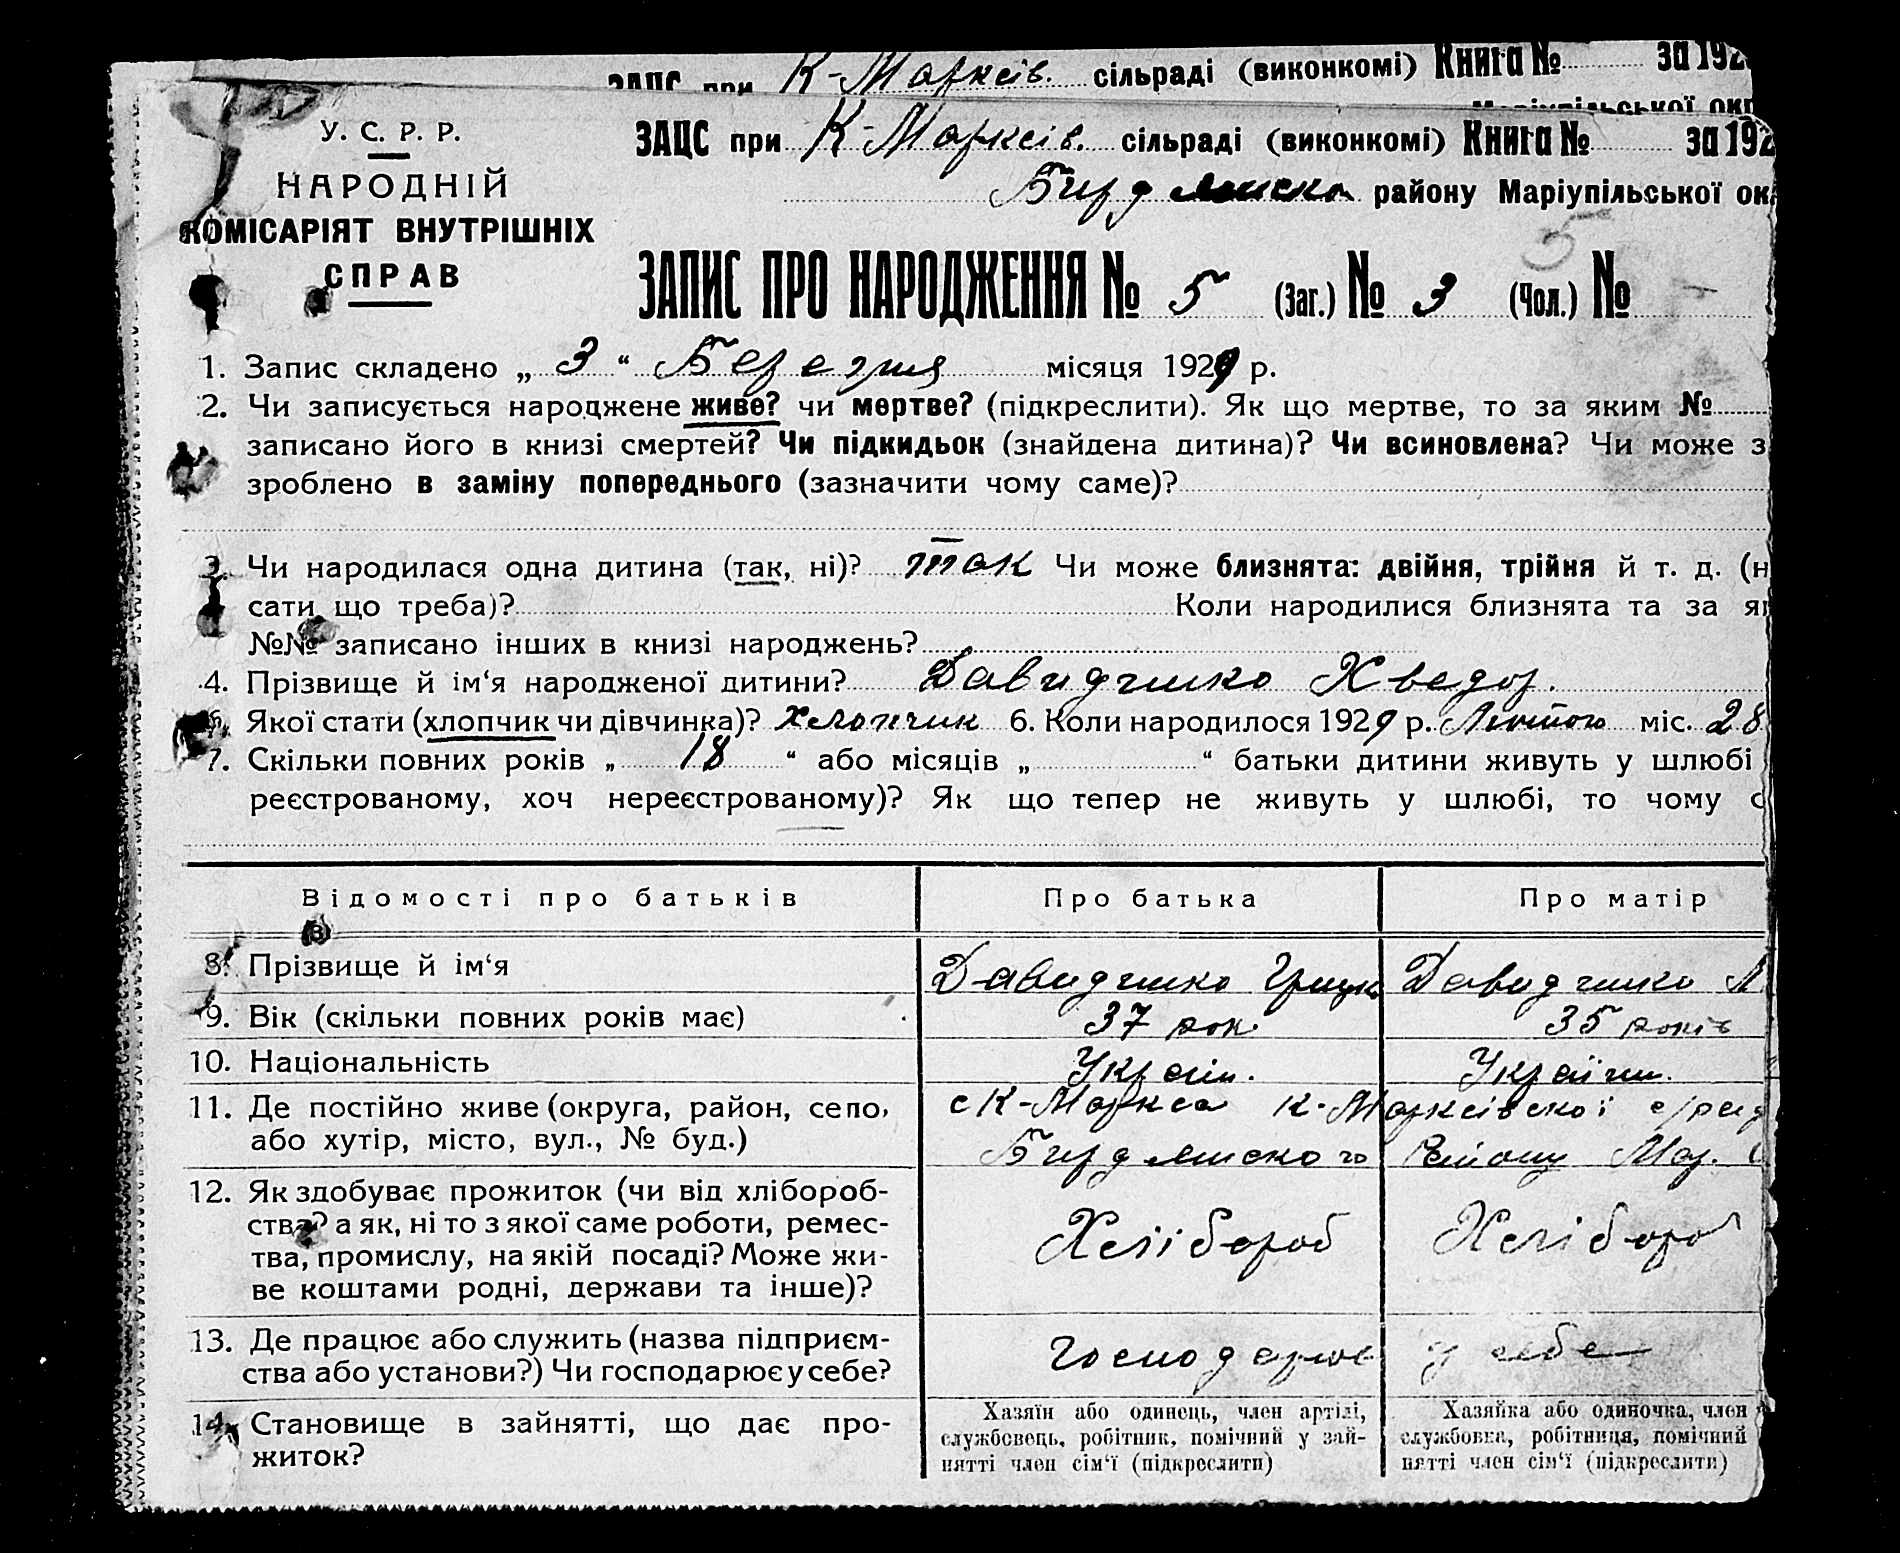 ЗАЦС при К-Марксів. сільраді (виконкомі) Книга № за 192
Маріупільської окр
У. С. Р. Р.
НАРОДНІЙ
КОМІСАРІЯТ ВНУТРІШНІХ
СПРАВ
ЗАЦС при К-Марксів. сільраді (виконкомі) Книга № за 192
Бердянська району Маріупільської ок
5
ЗАПИС ПРО НАРОДЖЕННЯ № 5 (Заг.) № 3 (Чол.) № –
1. Запис складено „ 3 “ Березня місяця 1929 р.
2. Чи записується народжене живе? чи мертве? (підкреслити). Як що мертве, то за яким №
записано його в книзі смертей? Чи підкидьок (знайдена дитина)? Чи всиновлена? Чи може з
зроблено в заміну попереднього (зазначити чому саме)?
3. Чи народилася одна дитина (так, ні)? так Чи може близнята: двійня, трійня й т. д. (н
сати що треба)? Коли народилися близнята та за як
№№ записано інших в книзі народжень?
4. Прізвище й ім‘я народженої дитини? Давидчинко Хведор.
5. Якої стати (хлопчик чи дівчинка)? хлопчик 6. Коли народилося 1929 р. Лютого міс. 28
7. Скільки повних років „ 18 “ або місяців „ “ батьки дитини живуть у шлюбі
реєстрованому, хоч нереєстрованому)? Як що тепер не живуть у шлюбі, то чому с
Відомості про батьків Про батька Про матір
8. Прізвище й ім‘я Давидчинко Грицко Давидчинко
9. Вік (скільки повних років має) 37 рок 35 років
10. Національність Україн. Україн.
11. Де постійно живе (округа, район, село, с К-Маркса К-Марксівської с/рад
або хутір, місто, вул., № буд.) Бердянського Району Мар.
12. Як здобуває прожиток (чи від хлібороб-
ства? а як, ні то з якої саме роботи, ремес- Хлібороб Хлібороб
тва, промислу, на якій посаді? Може жи-
ве коштами родні, держави та інше)?
13. Де працює або служить (назва підприєм- господарює у себе
ства або установи?) Чи господарює у себе?
14. Становище в зайнятті, що дає про-
житок?
Хазяїн або одинець, член артілі,
службовець, робітник, помічний у зай-
нятті член сім‘ї (підкреслити)
Хазяйка або одиночка, член
службовка, робітниця, помічний
нятті член сім‘ї (підкреслити)